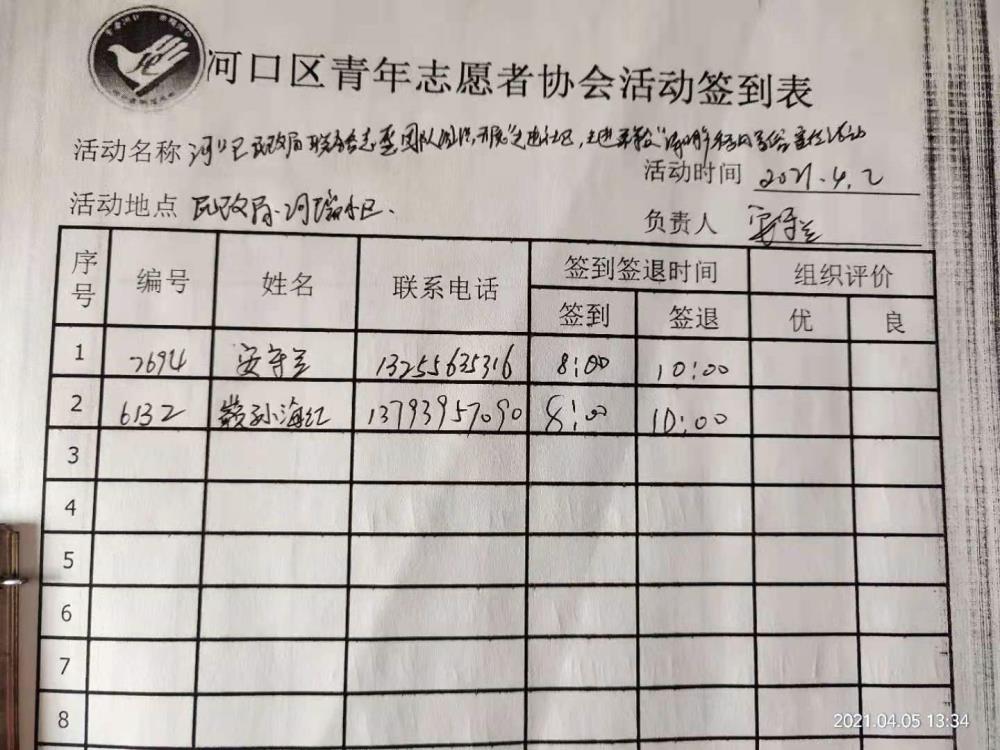 河口区青年志愿者协会活动签到表
活动名称 河口区民政局联合志愿团队 开展"走进社区,走进 活动
活动时间 2021.4.2
活动地点 民政局.河 小区.
负责人 安守兰
序号 编号 姓名 联系电话 签到签退时间 组织评价
签到 签退 优 良
1 7694 安守兰 13255635316 8:00 10:00
2 6132 孙海红 13793957090 8:00 10:00
3
4
5
6
7
8
2021.04.05 13:34